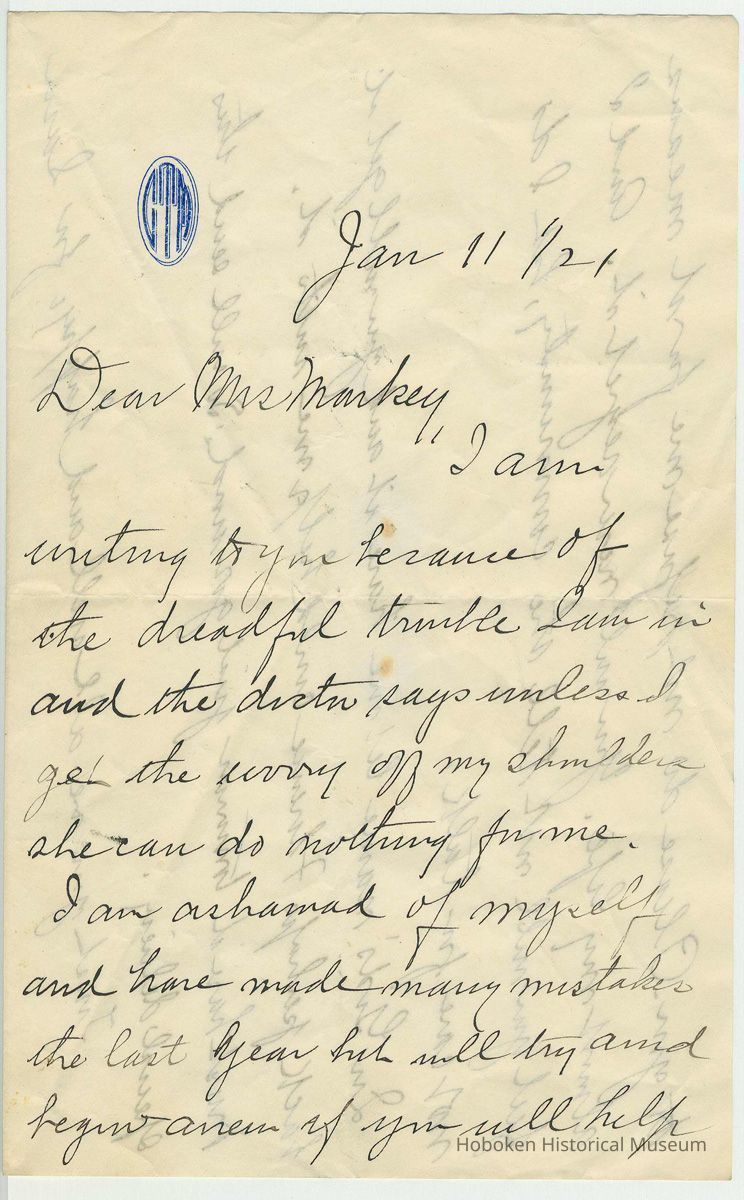 Jan 11 1/21
Dear Mrs Markey,
I am
writing to you because of
the dreadful trouble I am in
and the doctor says unless I
get the worry off my shoulders
she can do nothing for me.
I am ashamad of myself
and have made many mistakes
the last year but will try and
begin anew if you will help
Hoboken Historical Museum